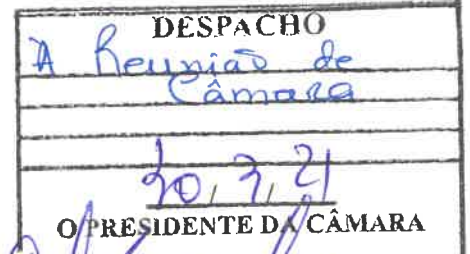 DESPACHO
A Reunião de
Câmara
20, 7, 21
O PRESIDENTE DA CÂMARA